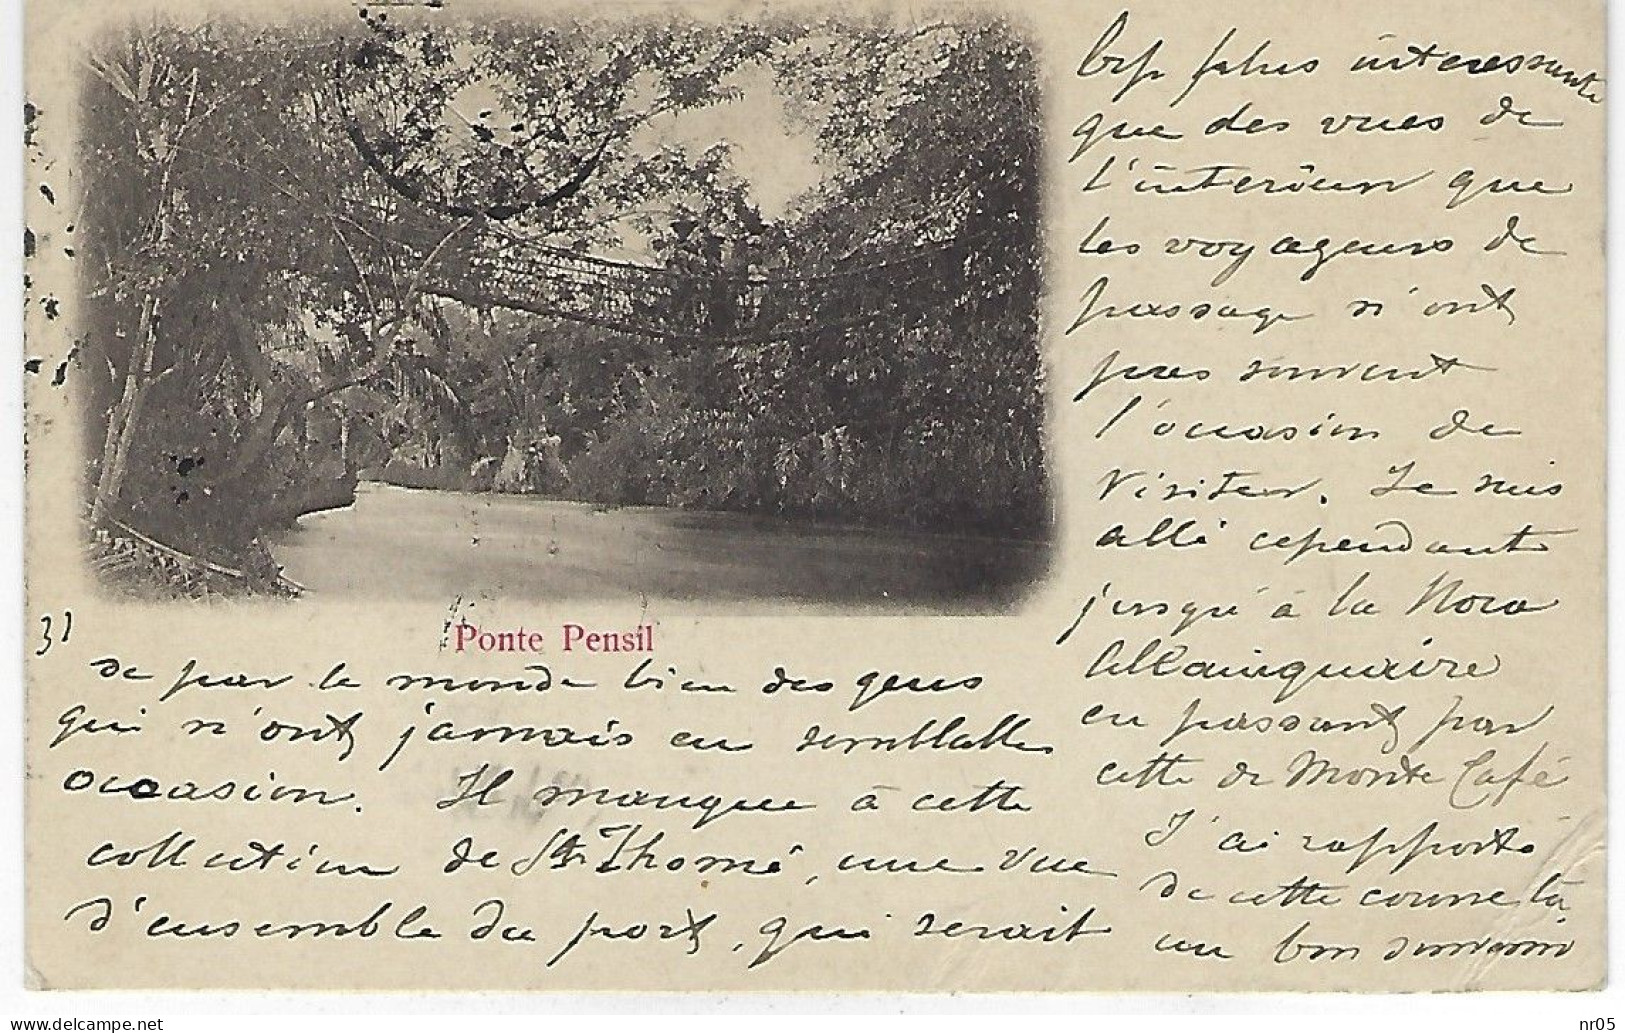 31
Ponte Pensil
de par le monde bien des gens
qui n'ont jamais eu semblable
occasion. Il manque à cette
collection de St Thomé, une vue
d'ensemble du port, qui serait
bcp plus interessante
que des vues de
l'intérieur que
les voyageurs de
passage n'ont
pas souvent
l'occasion de
visiter. Je suis
allé cependant
jusqu'à la Nova
en passant par
cette de Monte Café
J'ai rapporté
de cette course là
un bon souvenir
delcampe.net
nr05